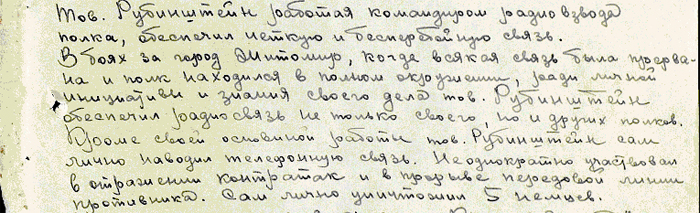 Тов. Рубинштейн работая командиром радио взвода
полка, обеспечил четкую и бесперебойную связь.
В боях за город Житомир, когда всякая связь была прерва-
на и полк находился в полном окружении, ради личной
инициативы и знания своего дела тов. Рубинштейн
обеспечил радиосвязь не только своего, но и других полков.
Кроме своей основной работы тов. Рубинштейн сам
лично наводил телефонную связь. Неоднократно участвовал
в отражении контратак и в прорыве передовой линии
противника. Сам лично уничтожил 5 немцев.